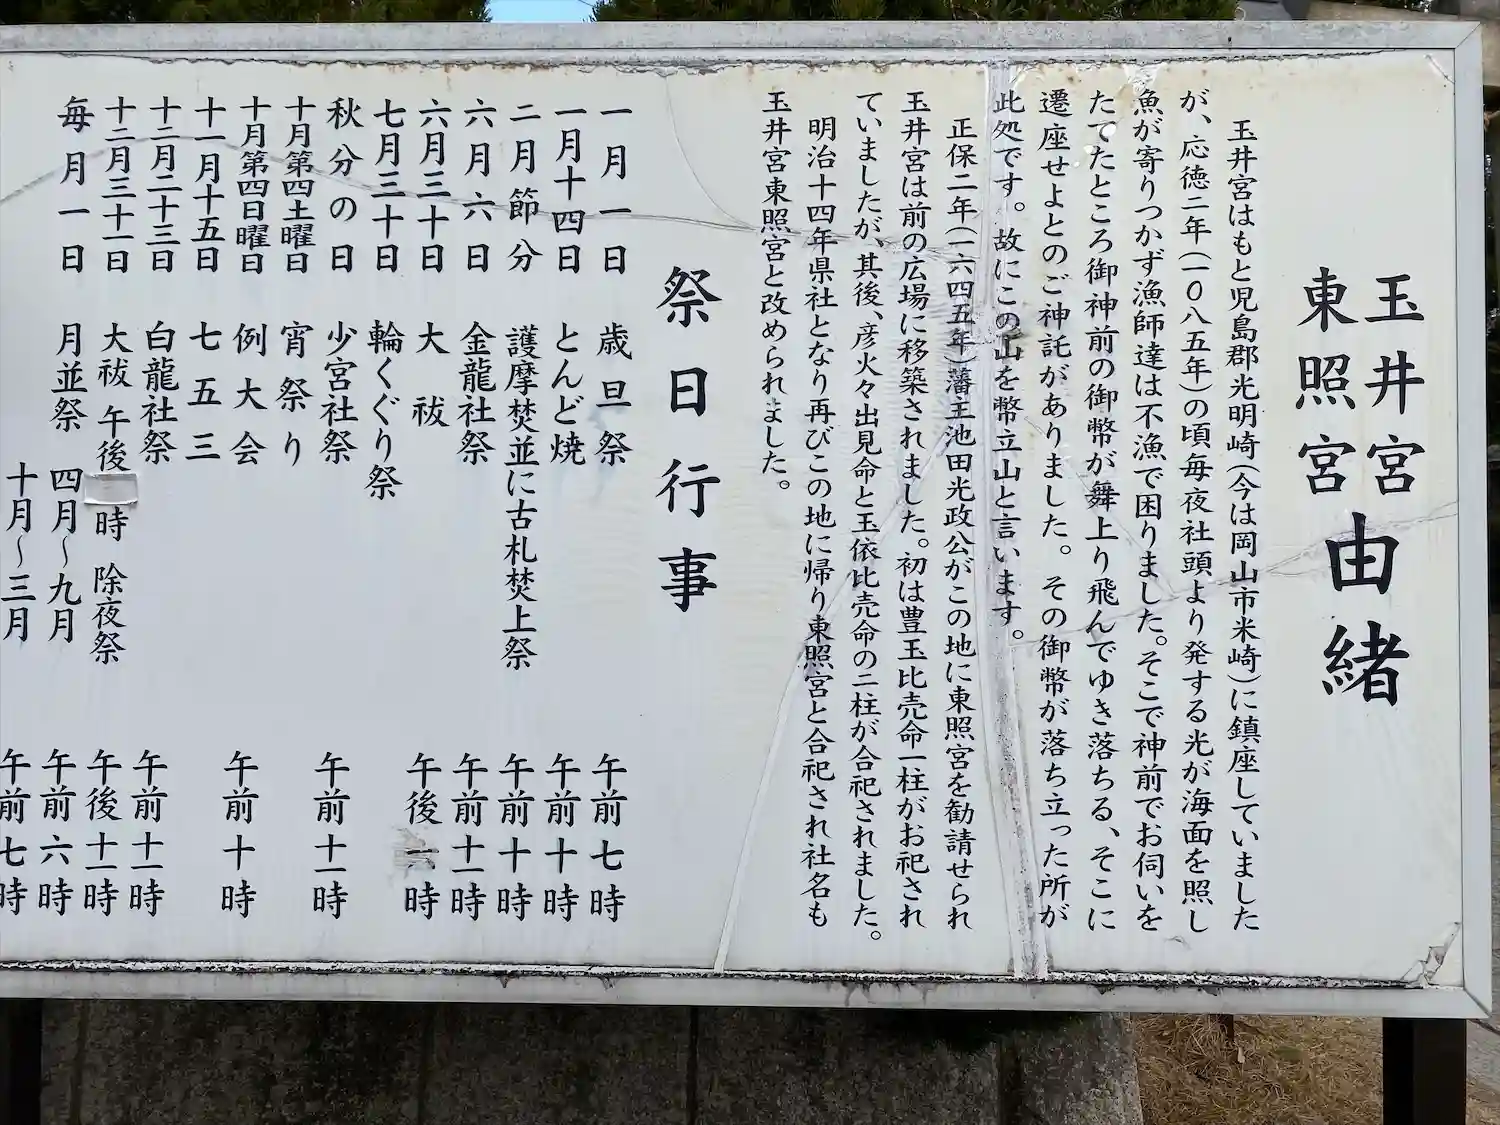 玉井宮
東照宮 由緒
玉井宮はもと児島郡光明崎(今は岡山市米崎)に鎮座していました
が、応徳二年(一〇八五年)の頃毎夜社頭より発する光が海面を照し
魚が寄りつかず漁師達は不漁で困りました。そこで神前でお伺いを
たてたところ御神前の御幣が舞上り飛んでゆき落ちる、そこに
遷座せよとのご神託がありました。その御幣が落ち立った所が
此処です。故にこの山を幣立山と言います。
正保二年(一六四五年)藩主池田光政公がこの地に東照宮を勧請せられ
玉井宮は前の広場に移築されました。初は豊玉比売命一柱がお祀され
ていましたが、其後、彦火々出見命と玉依比売命の二柱が合祀されました。
明治十四年県社となり再びこの地に帰り東照宮と合祀され社名も
玉井宮東照宮と改められました。
祭日行事
一月一日 歳旦祭 午前七時
一月十四日 とんど焼 午前十時
二月節分 護摩焚並に古札焚上祭 午前十時
六月六日 金龍社祭 午前十一時
六月三十日 大祓 午後 時
七月三十日 輪くぐり祭
秋分の日 少宮社祭 午前十一時
十月第四土曜日 宵祭り
十月第四日曜日 例大会 午前十時
十一月十五日 七五三
十二月二十三日 白龍社祭 午前十一時
十二月三十一日 大祓 午後 時 除夜祭 午後十一時
毎月一日 月並祭 四月〜九月 午前六時
十月〜三月 午前七時